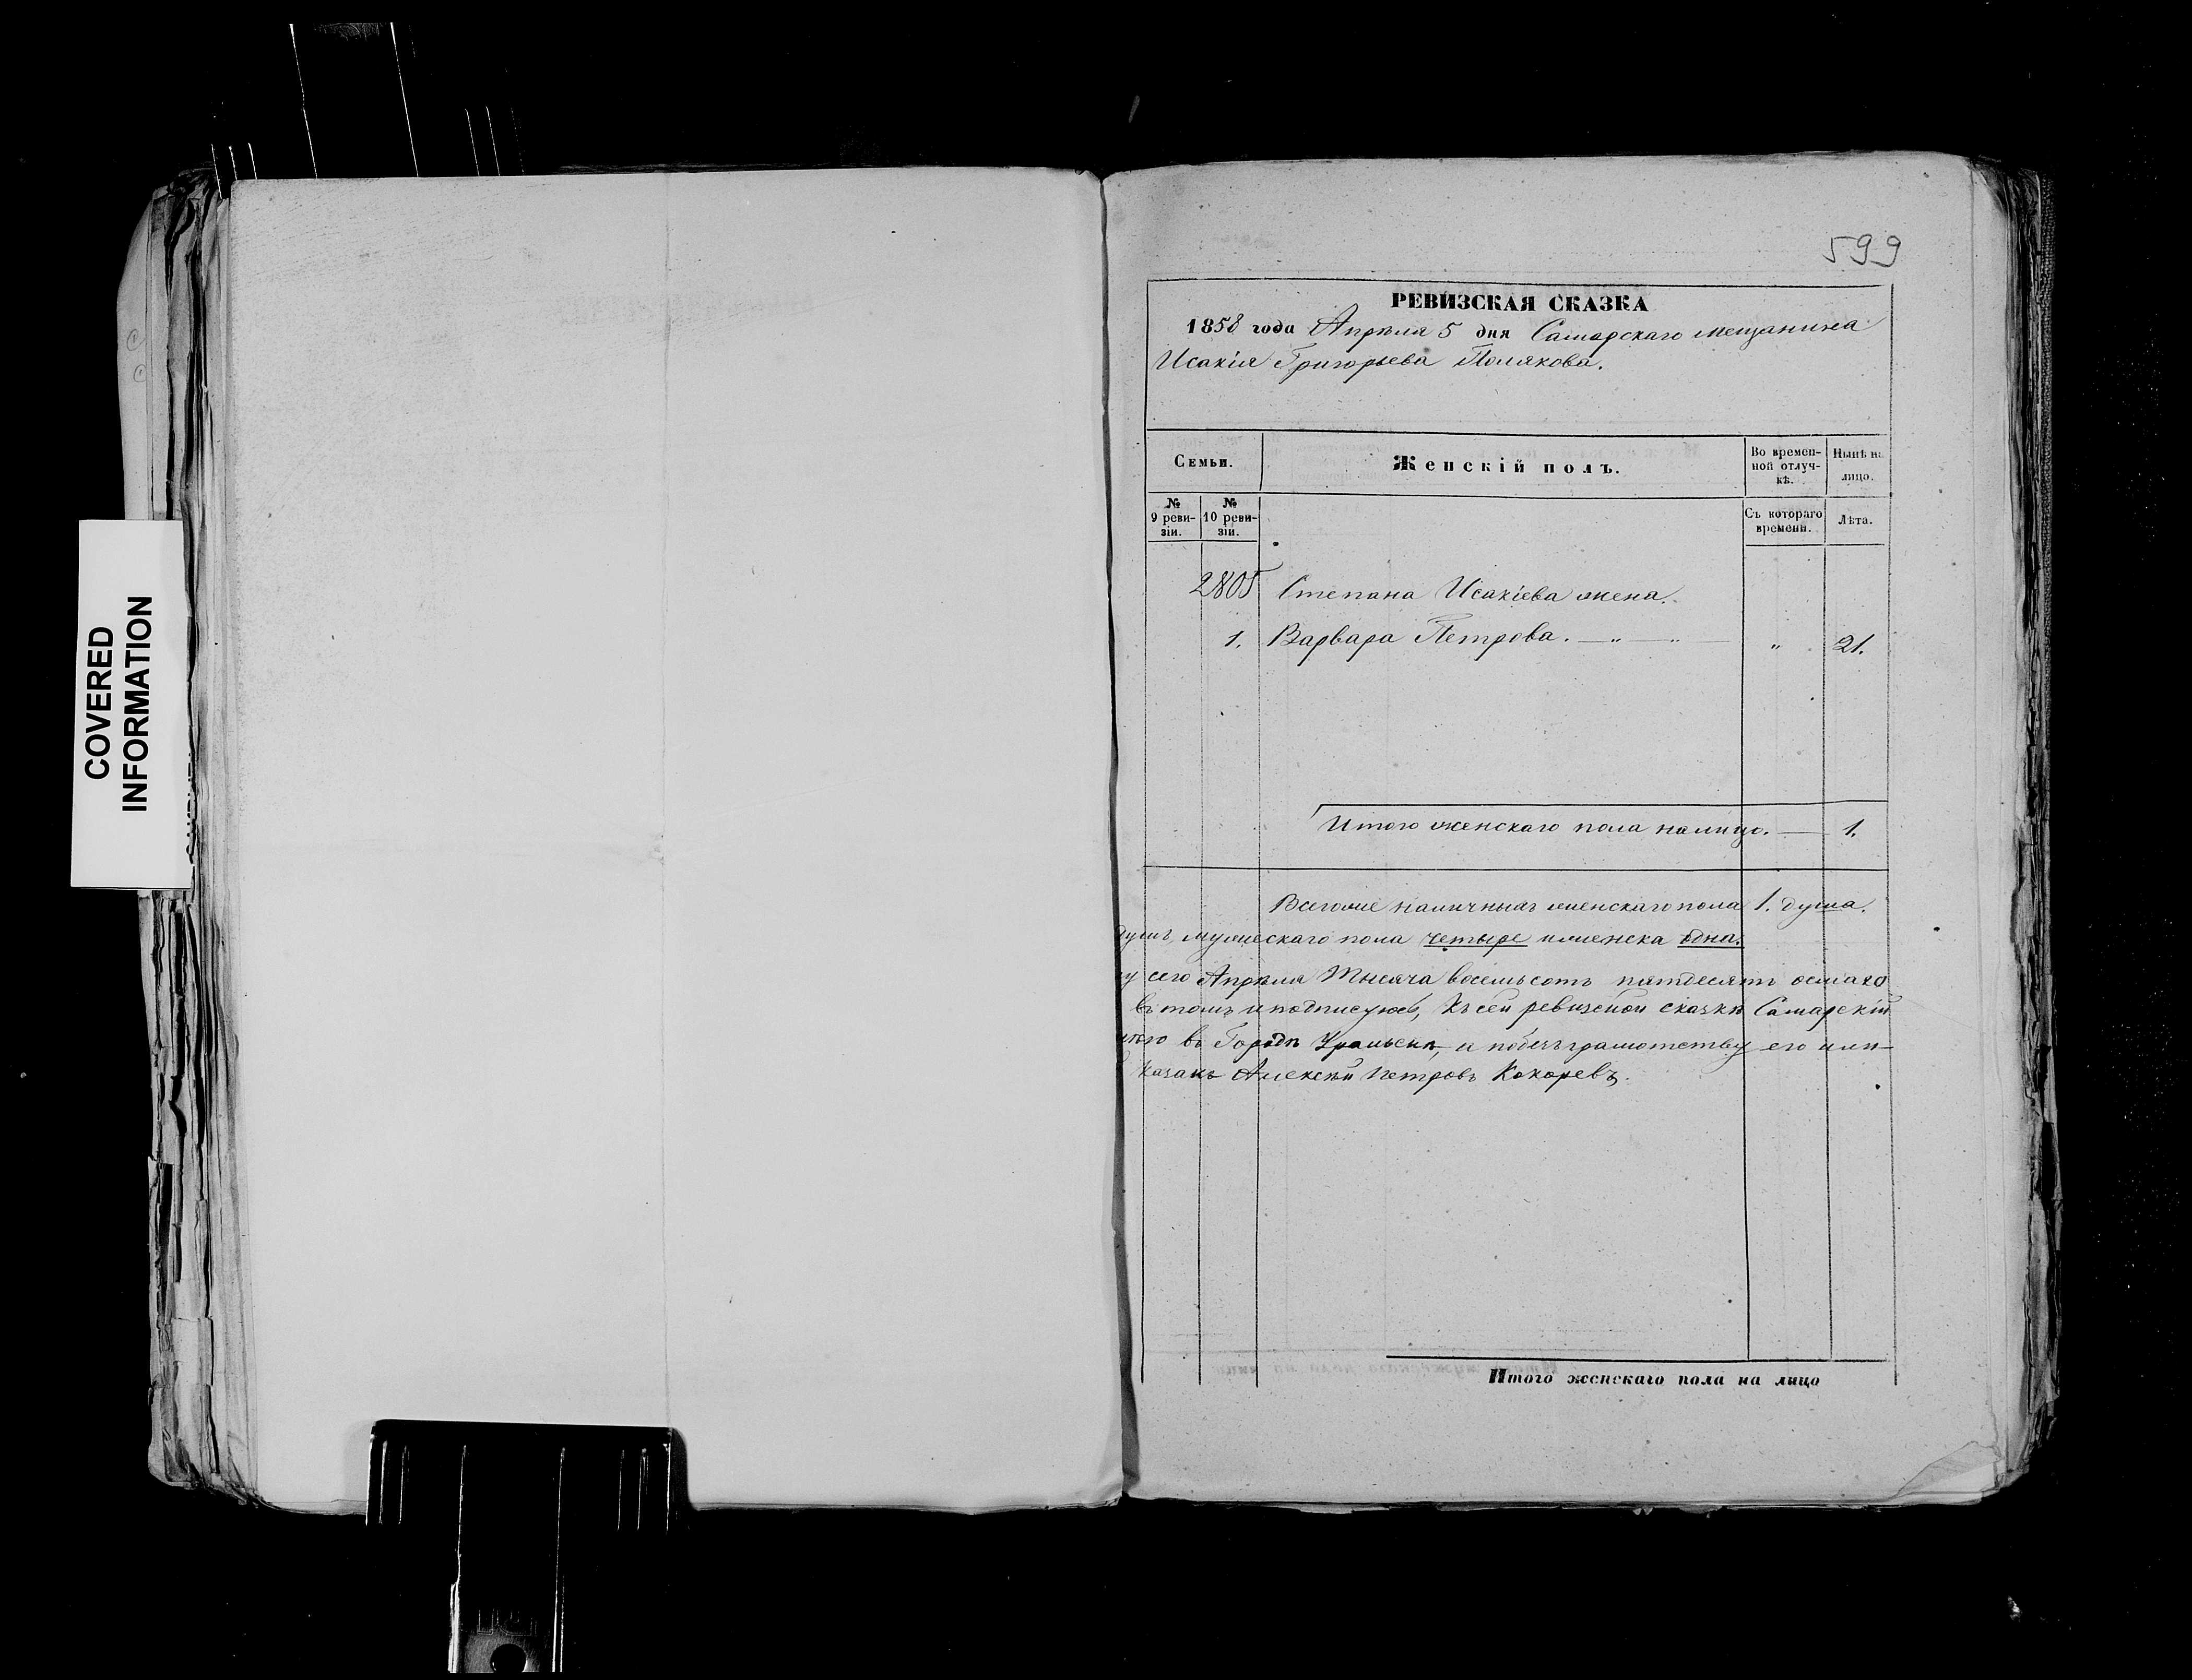 COVERED
INFORMATION
599
РЕВИЗСКАЯ СКАЗКА
1858 года Апрѣля 5 дня Самарскаго мещанина
Исакія Григорьева Полякова.
Семьи. Женскій полъ. Во времен-
ной отлуч-
кѣ. Нынѣ на
лицо.
№
9 реви-
зіи. №
10 реви-
зіи. Съ котораго
времени. Лѣта.
2805 Степана Исакіева жена.
1. Варвара Петрова. — " — " " 21.
Итого женскаго пола налицо. — 1.
Всего же наличныхъ женскаго пола 1. душа.
душъ мужескаго пола четыре и женска одна.
сего Апрѣля Тысяча восемьсотъ пятдесятъ осмаго
въ томъ и подписуюсь, Къ сей ревизской сказкѣ Самарскій
въ Городѣ Уральскѣ, и по безграмотству его или-
Казакъ Алексѣй Петровъ Кокоревъ.
Итого женскаго пола на лицо